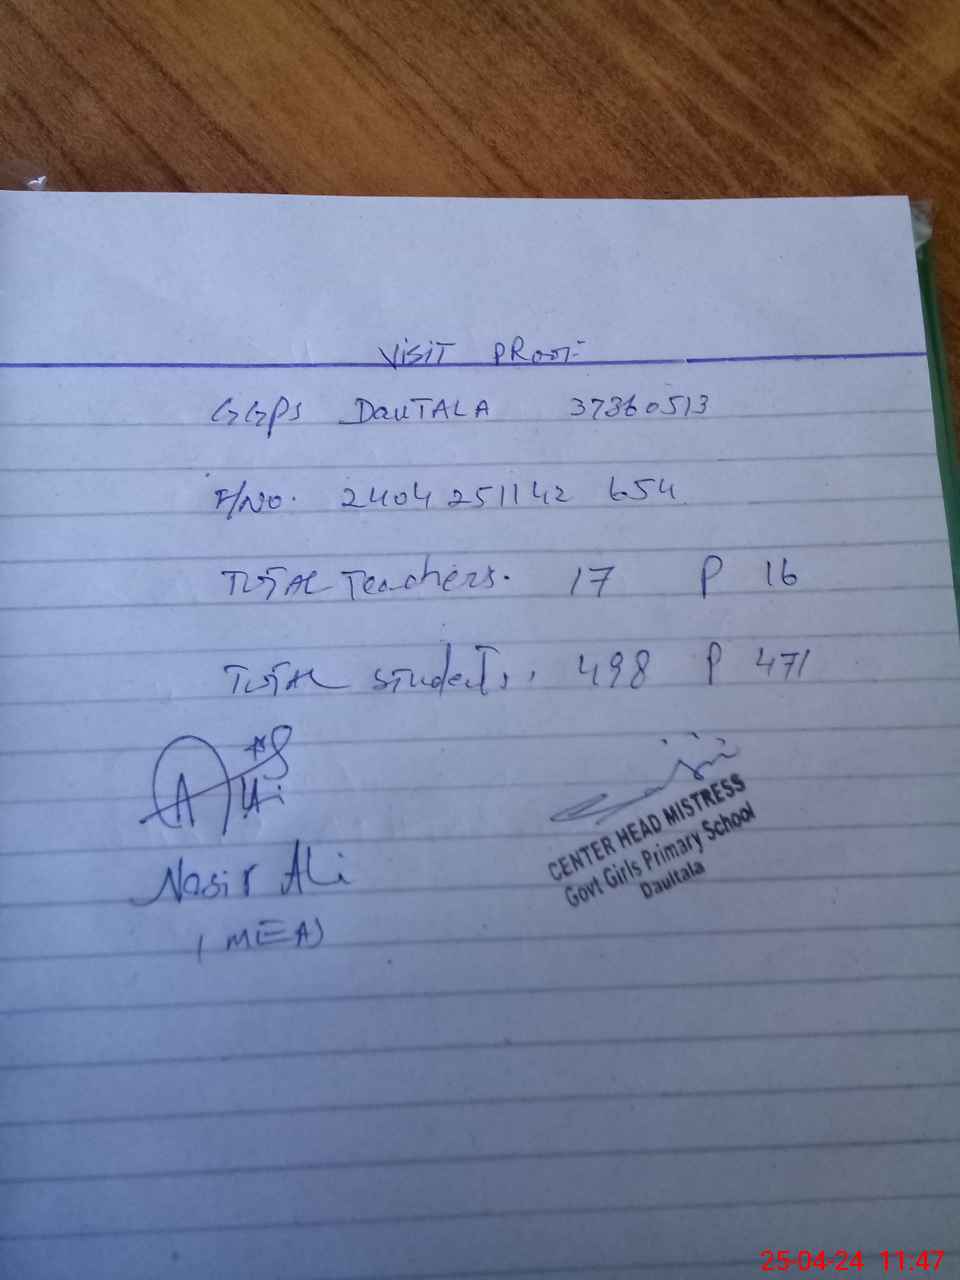 VISIT PROOF
GGPS DAUTALA 37360513
F/No. 2404251142 654
TOTAL Teachers. 17 P 16
TOTAL Students. 498 P 471
Nasir Ali
(MEA)
CENTER HEAD MISTRESS
Govt Girls Primary School
Daultala
25-04-24 11:47